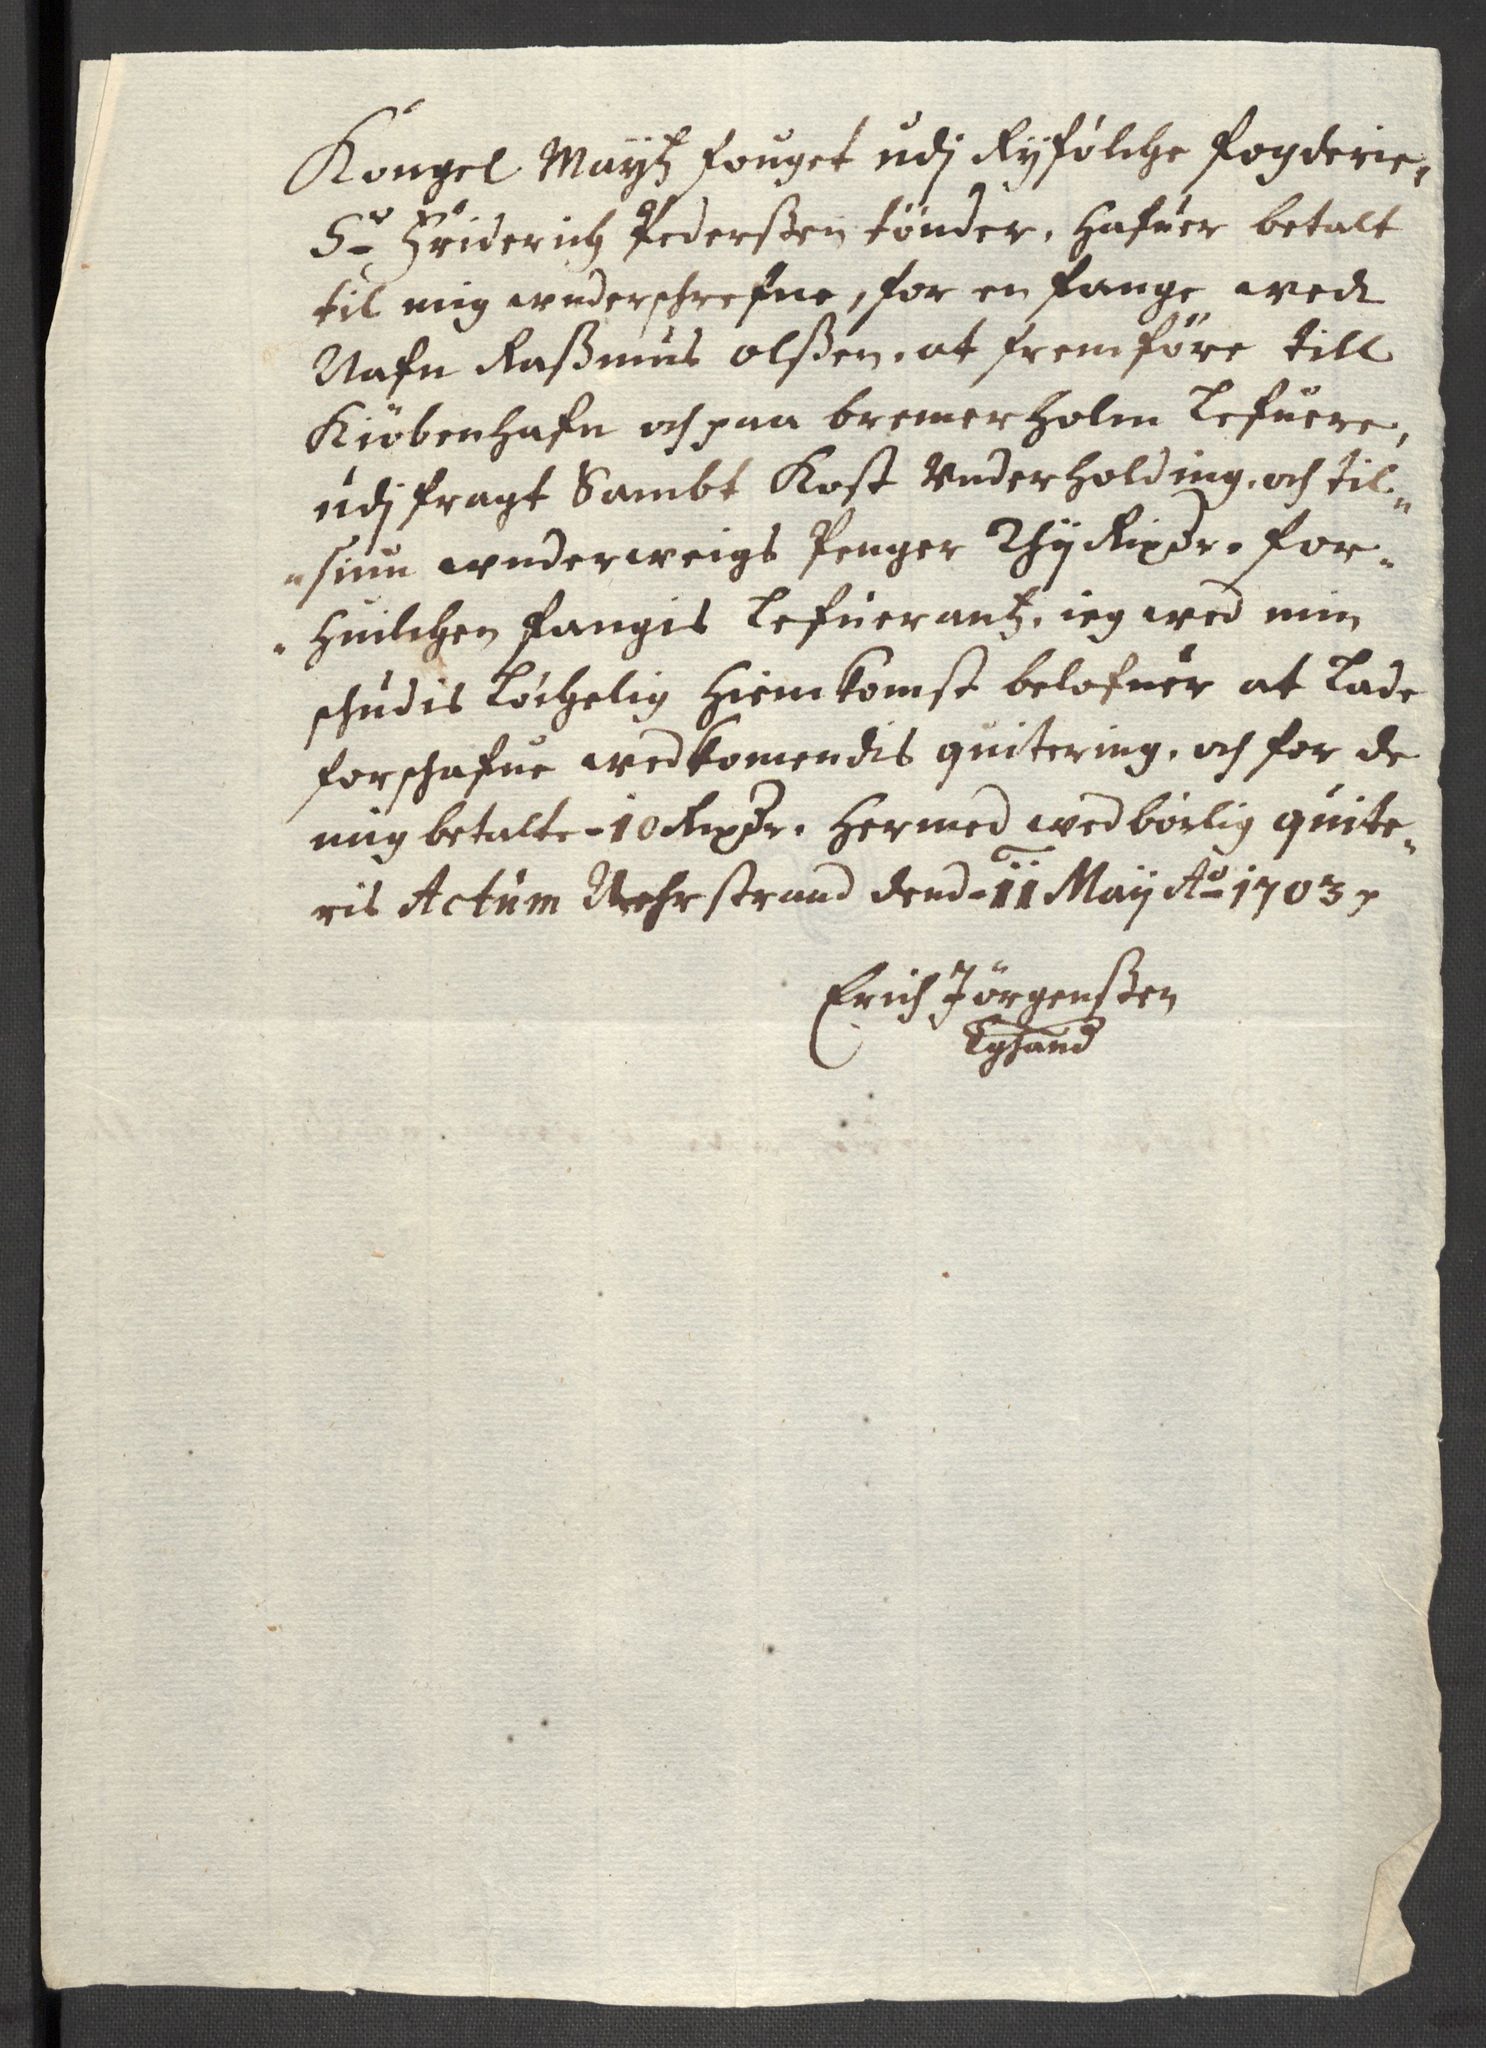 Kongel Maytz fouget udj Ryfölche fogderie,
Sr Friderich Pederßen tönder. hafuer betalt
til mig wnderschrefne, for en fange wed
Nafn Raßmus olßen. at fremföre till
Kiöbenhafn och paa bremerholm Lefuere,
udj fragt Sambt Kost Vnderholding. och til„
„siun wnderweigs Penger Thij Rixdr. for„
„huilchen fangis Lefuerantz. ieg wed min
schudis Löchelig hiemkomst belofuer at Lade
forschafue wedkomendis quitering. och for de
mig betalte - 10 Rixdr. hermed wedbörlig quite„
ris Actum Nehrstrand dend - 11 Maij Ao 1703 p
Erich Jörgenßen